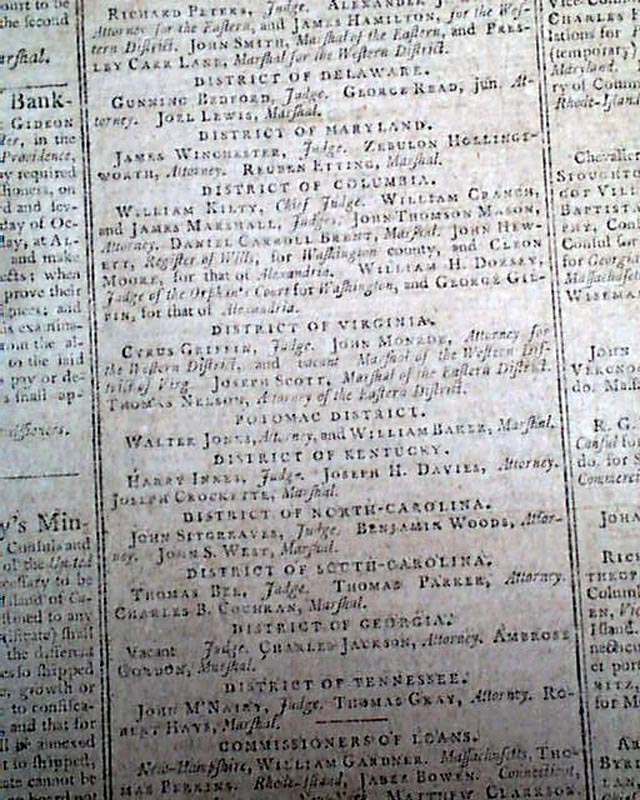 ourt to be
the second
Marshal.
Bank-
GIDEON
in the
Providence,
required
on
and
day of Oc-
day, at AL-
and make
when
prove their
and
examina-
on the al-
to the said
pay or de-
shall ap-
y's Min-
Consuls and
of the United
cessary to be
Island of Cu-
to any
shall
the different
shipped
growth or
to confisca-
and that for
be annexed
to shipped,
cate cannot be
RICHARD PETERS, Judge. ALEXANDER J.
Attorney for the Eastern, and JAMES HAMILTON, for the Wes-
tern District. JOHN SMITH, Marshal of the Eastern, and PRES-
LEY CARR LANE, Marshal for the Western District.
DISTRICT OF DELAWARE.
GUNNING BEDFORD, Judge. GEORGE READ, jun. At-
torney. JOEL LEWIS, Marshal.
DISTRICT OF MARYLAND.
JAMES WINCHESTER, Judge. ZEBULON HOLLINGS-
WORTH, Attorney. REUBEN ETTING, Marshal.
DISTRICT OF COLUMBIA.
WILLIAM KILTY, Chief Judge. WILLIAM CRANCH,
and JAMES MARSHALL, Judges. JOHN THOMSON MASON,
Attorney. DANIEL CARROLL BRENT, Marshal. JOHN HEW-
ETT, Register of Wills, for Washington county, and CLEON
MOORE, for that of Alexandria. WILLIAM H. DORSEY,
Judge of the Orphan's Court for Washington, and GEORGE GIL-
PIN, for that of Alexandria.
DISTRICT OF VIRGINIA.
CYRUS GRIFFIN, Judge. JOHN MONROE, Attorney for
the Western District, and vacant Marshal of the Western Dis-
trict of Virg. JOSEPH SCOTT, Marshal of the Eastern District.
THOMAS NELSON, Attorney of the Eastern District.
POTOMAC DISTRICT.
WALTER JONES, Attorney, and WILLIAM BAKER, Marshal.
DISTRICT OF KENTUCKY.
HARRY INNES, Judge. JOSEPH H. DAVIES, Attorney.
JOSEPH CROCKETTE, Marshal.
DISTRICT OF NORTH-CAROLINA.
JOHN SITGREAVES, Judge. BENJAMIN WOODS, Attor-
ney. JOHN S. WEST, Marshal.
DISTRICT OF SOUTH-CAROLINA.
THOMAS BEE, Judge. THOMAS PARKER, Attorney.
CHARLES B. COCHRAN, Marshal.
DISTRICT OF GEORGIA.
Vacant Judge. CHARLES JACKSON, Attorney. AMBROSE
GORDON, Marshal.
DISTRICT OF TENNESSEE.
JOHN M'NAIRY, Judge. THOMAS GRAY, Attorney. RO-
BERT HAYS, Marshal.
COMMISSIONERS OF LOANS.
New-Hampshire, WILLIAM GARDNER. Massachusetts, THO-
MAS PERKINS. Rhode-Island, JABEZ BOWEN. Connecticut,
MATTHEW CLARKSON,
CHARLES
lations for
(temporary)
Maryland.
ry of Comm
Rhode-Island
Chevalier
STOUGHTON
DOT VILL
BAPTIST
Consul Gen
for Georgia
Massachusetts
WISEMAN
JOHN
do. Mad
R. G.
Consul for
do. for S
Commerce
JOHN
RICH
Columb
EN, Vice
Island.
et port
for M
BYRD
LAND